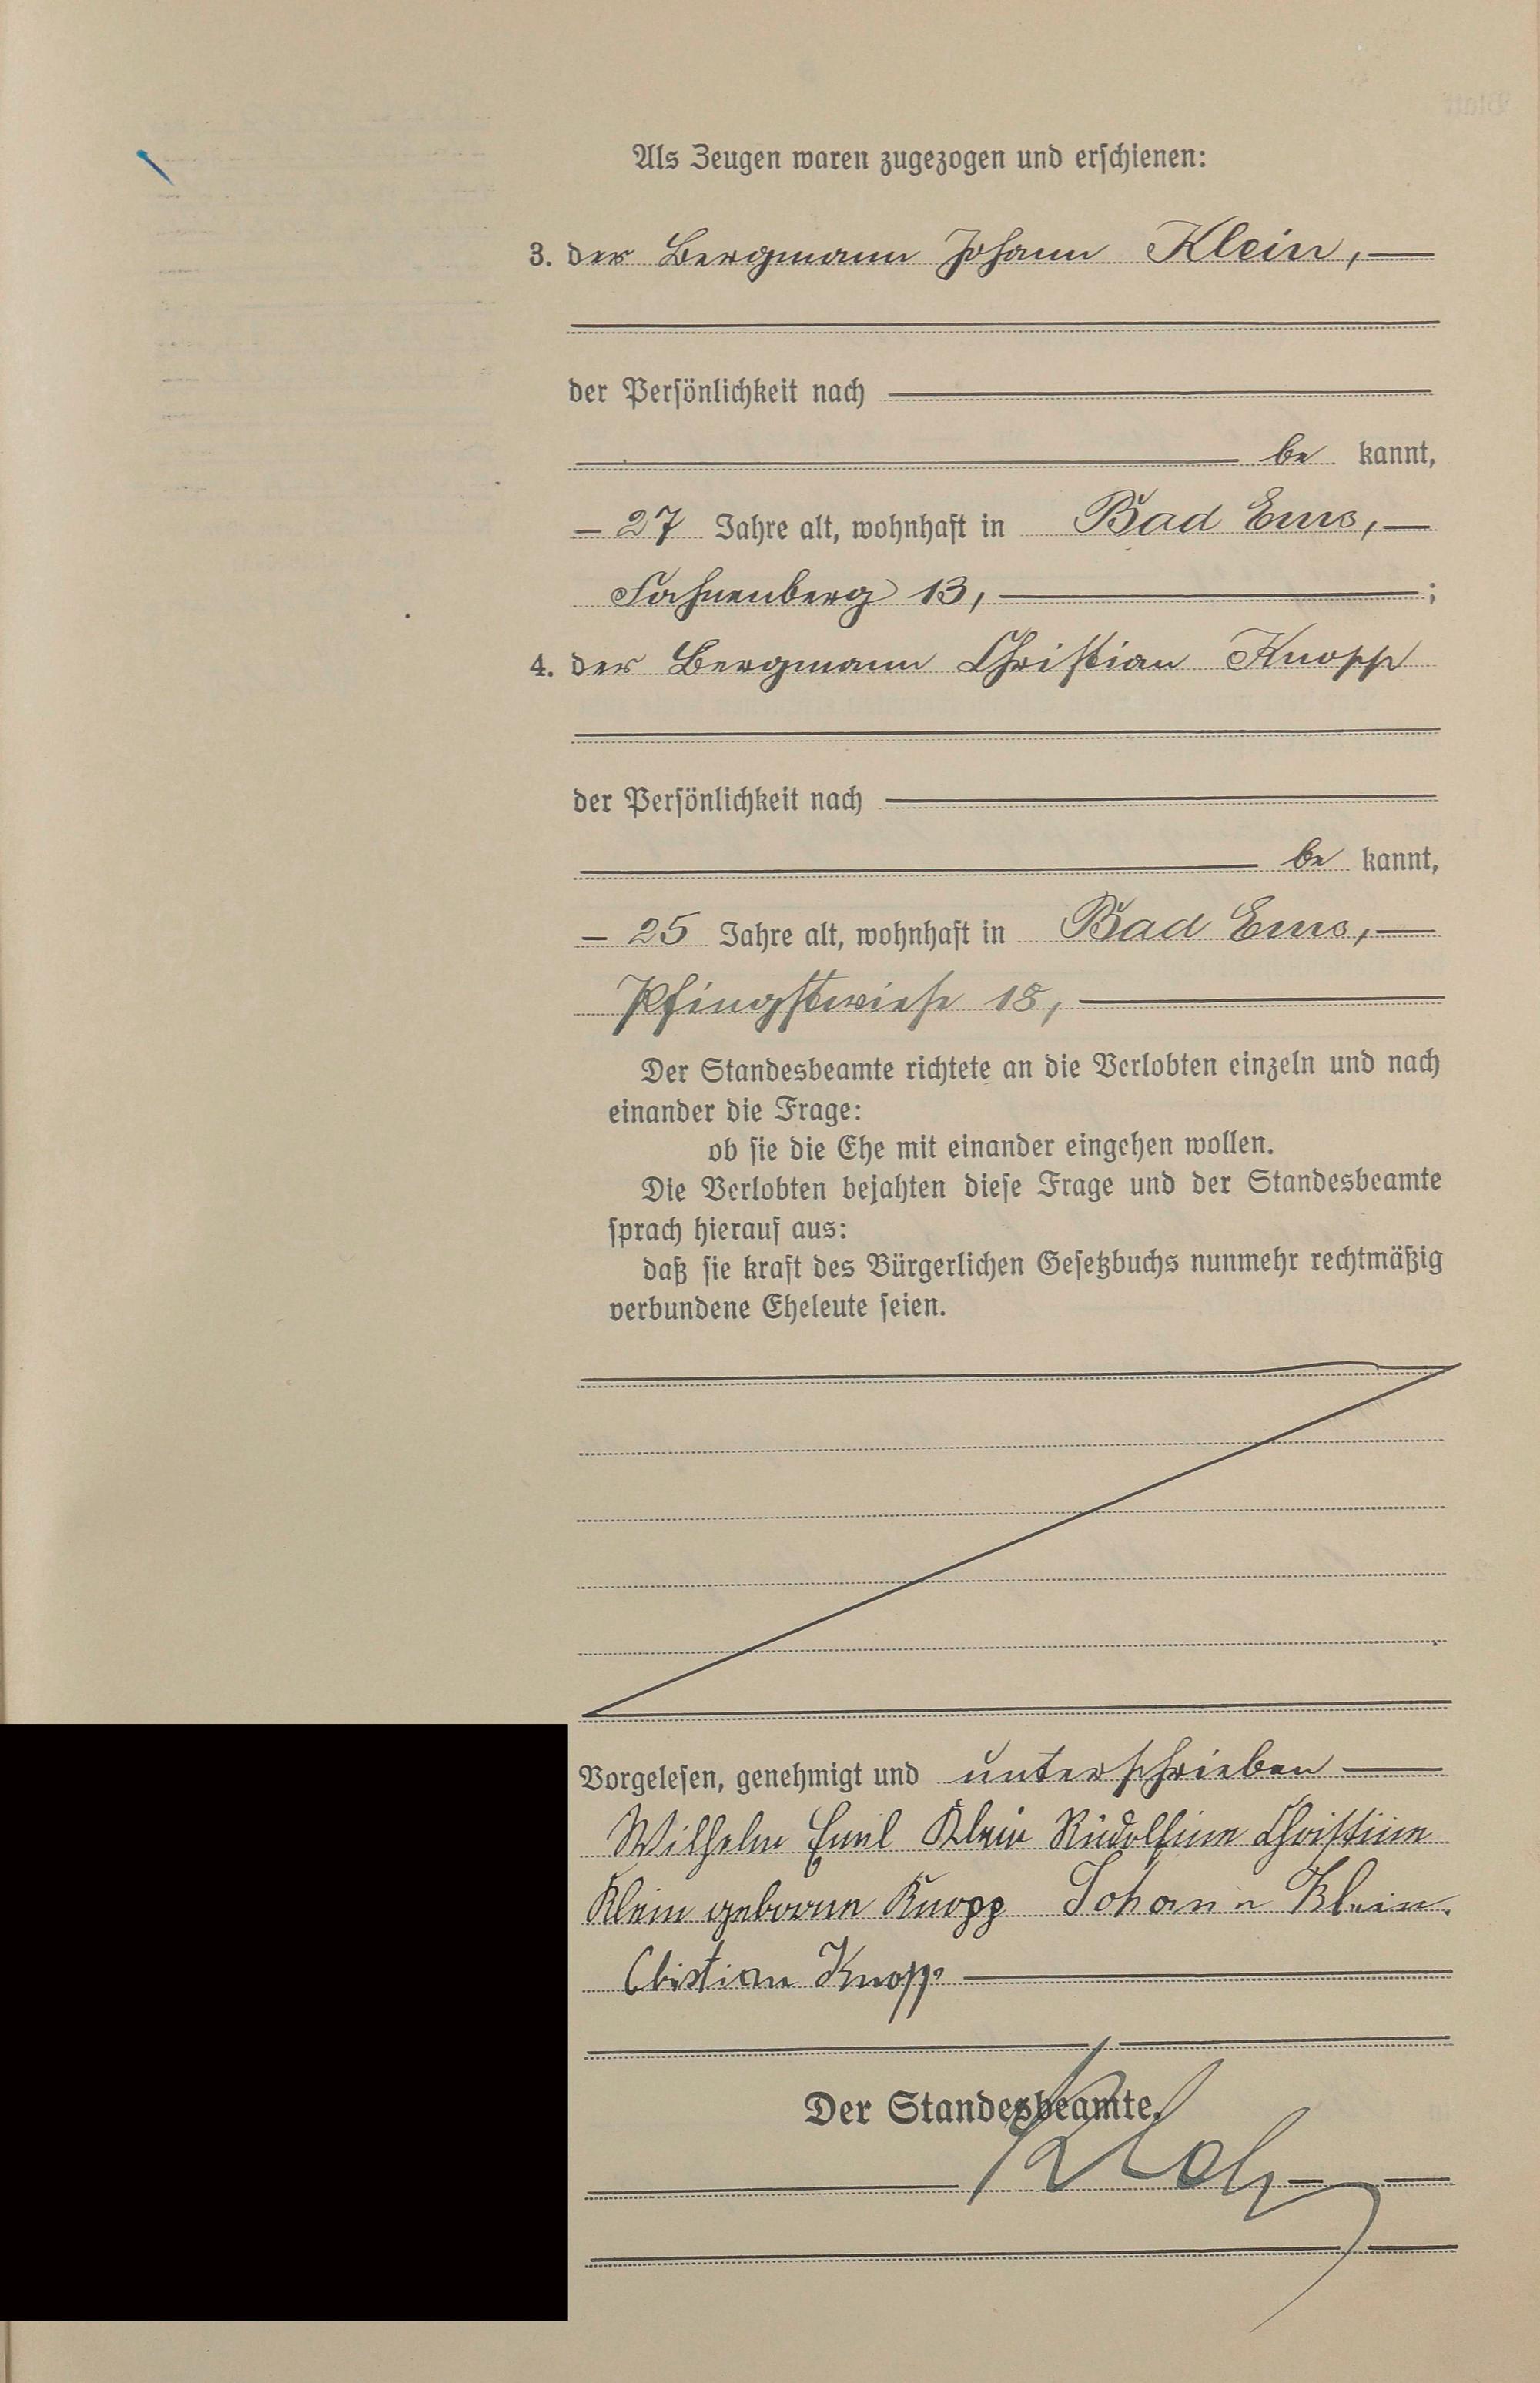 Als Zeugen waren zugezogen und erschienen:
3. der Bergmann Johann Klein,
der Persönlichkeit nach
be kannt,
27 Jahre alt, wohnhaft in Bad Ems,
Fahnenberg 13, ;
4. der Bergmann Christian Knopp
der Persönlichkeit nach
be kannt,
25 Jahre alt, wohnhaft in Bad Ems,
Pfingstwiese 18,
Der Standesbeamte richtete an die Verlobten einzeln und nach
einander die Frage:
ob sie die Ehe mit einander eingehen wollen.
Die Verlobten bejahten diese Frage und der Standesbeamte
sprach hierauf aus:
daß sie kraft des Bürgerlichen Gesetzbuchs nunmehr rechtmäßig
verbundene Eheleute seien.
Vorgelesen, genehmigt und unterschrieben
Wilhelm Emil Klein Rudolfine Christine
Klein geborene Knopp Johann Klein.
Christian Knopp
Der Standesbeamte.